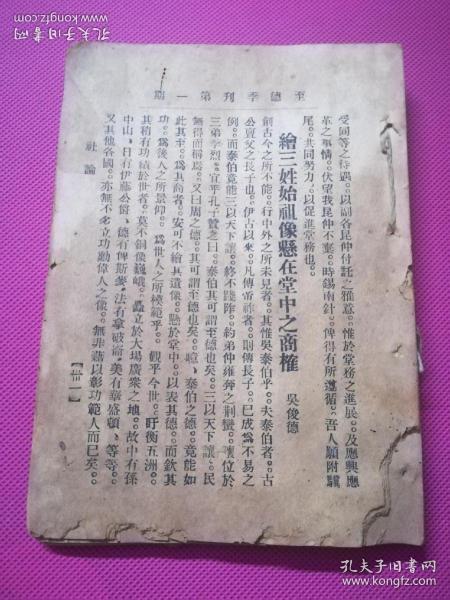 孔夫子旧书网
至德季刊第一期
受同等之待遇。以副各昆仲付託之雅意。惟於堂務之進展。及應興應
革之事情。伏望我昆仲不棄。時錫南針。俾得有所遵循。吾人願附驥
尾。共同努力。以促進堂務也。
繪三姓始祖像懸在堂中之商榷
吳俊德
創古今之所不能。行中外之所未見者。其惟吳泰伯乎。夫泰伯者。古
公亶父之長子也。伊古以來。凡傳帝祚者。則傳長子。已成為不易之
例。而泰伯竟能三以天下讓。終不踐阼。約弟仲雍奔之荊蠻。讓位於
三弟季烈。宜乎孔子贊之曰。泰伯其可謂至德也矣。三以天下讓。民
無得而稱焉。又曰周之德。其可謂至德也矣。噫。泰伯之德。竟能如
此其至。為其裔者。安可不繪其遺像。懸於堂中。以表其德。而欽其
功。為後人之所景仰。為世人之所模範乎。觀乎今世。盱衡五洲。
其稍有功績於世者。莫不銅像巍峨。矗立於大場廣衆之地。故中有孫
中山、日有伊藤公爵、德有俾斯麥、法有拿破崙、美有華盛頓、等等。
又其他各國。亦無不為立功勳偉人之像。無非藉以彰功範人而已矣。
社論
【廿一】
孔夫子旧书网
book.kongfz.com